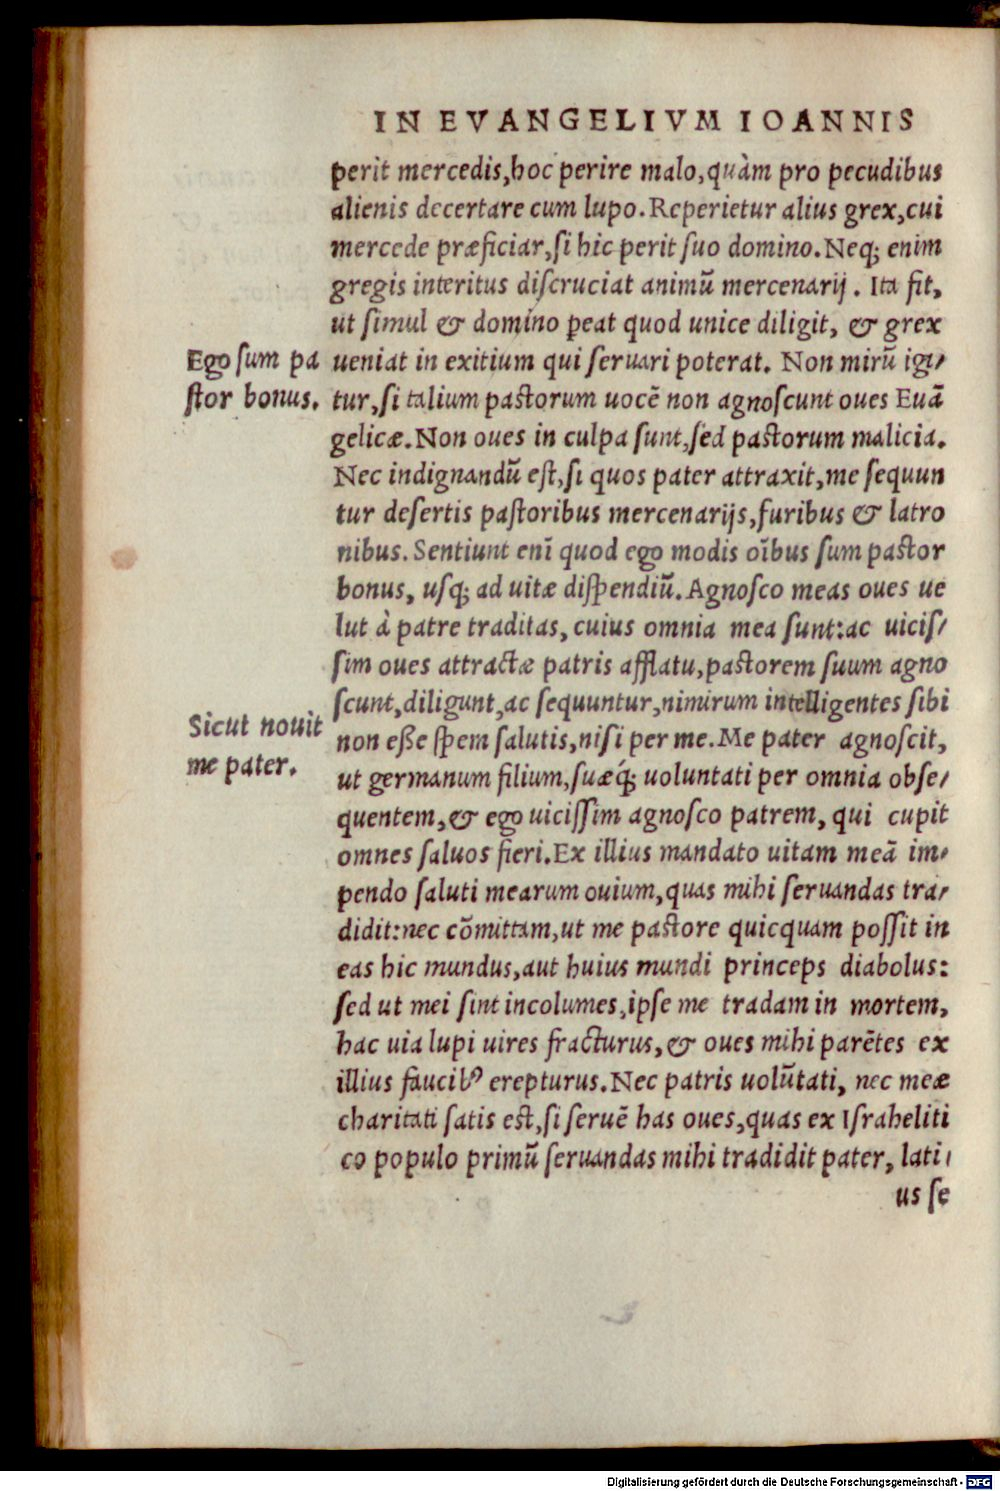 IN EVANGELIVM IOANNIS
perit mercedis, hoc perire malo, quàm pro pecudibus
alienis decertare cum lupo. Reperietur alius grex, cui
mercede præficiar, si hic perit suo domino. Neq; enim
gregis interitus discruciat animũ mercenarij. Ita fit,
ut simul & domino peat quod unice diligit, & grex
Ego sum pa
ueniat in exitium qui seruari poterat. Non mirũ igi⸗
stor bonus.
tur, si talium pastorum uocẽ non agnoscunt oues Euã
gelicæ. Non oues in culpa sunt, sed pastorum malicia.
Nec indignandũ est, si quos pater attraxit, me sequun
tur desertis pastoribus mercenarijs, furibus & latro
nibus. Sentiunt enĩ quod ego modis oĩbus sum pastor
bonus, usq; ad uitæ dispendiũ. Agnosco meas oues ue
lut à patre traditas, cuius omnia mea sunt: ac uicis⸗
sim oues attractæ patris afflatu, pastorem suum agno
scunt, diligunt, ac sequuntur, nimirum intelligentes sibi
Sicut nouit
non esse spem salutis, nisi per me. Me pater agnoscit,
me pater.
ut germanum filium, suæq́; uoluntati per omnia obse⸗
quentem, & ego uicissim agnosco patrem, qui cupit
omnes saluos fieri. Ex illius mandato uitam meã im⸗
pendo saluti mearum ouium, quas mihi seruandas tra⸗
didit: nec cõmittam, ut me pastore quicquam possit in
eas hic mundus, aut huius mundi princeps diabolus:
sed ut mei sint incolumes, ipse me tradam in mortem,
hac uia lupi uires fracturus, & oues mihi parẽtes ex
illius faucibꝰ erepturus. Nec patris uolũtati, nec meæ
charitati satis est, si seruẽ has oues, quas ex Israheliti
co populo primũ seruandas mihi tradidit pater, lati⸗
us se
Digitalisierung gefördert durch die Deutsche Forschungsgemeinschaft - DFG